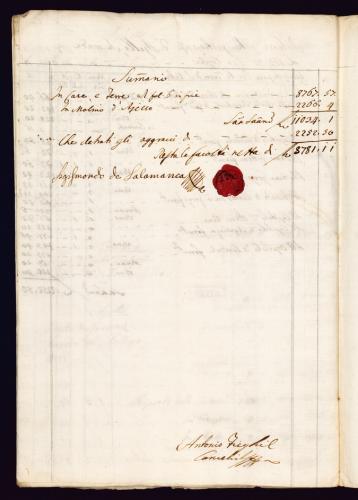 Sumario
In Case e Terre al fol. 6 in piè 8767.57
in Molino d'Ajello 2266.4
Sao Saând 11024.1
Che detrati gli aggravi di 2252.50
Resta le facoltà netta di 8781.11
Sigismondo de Salamanca
Antonio